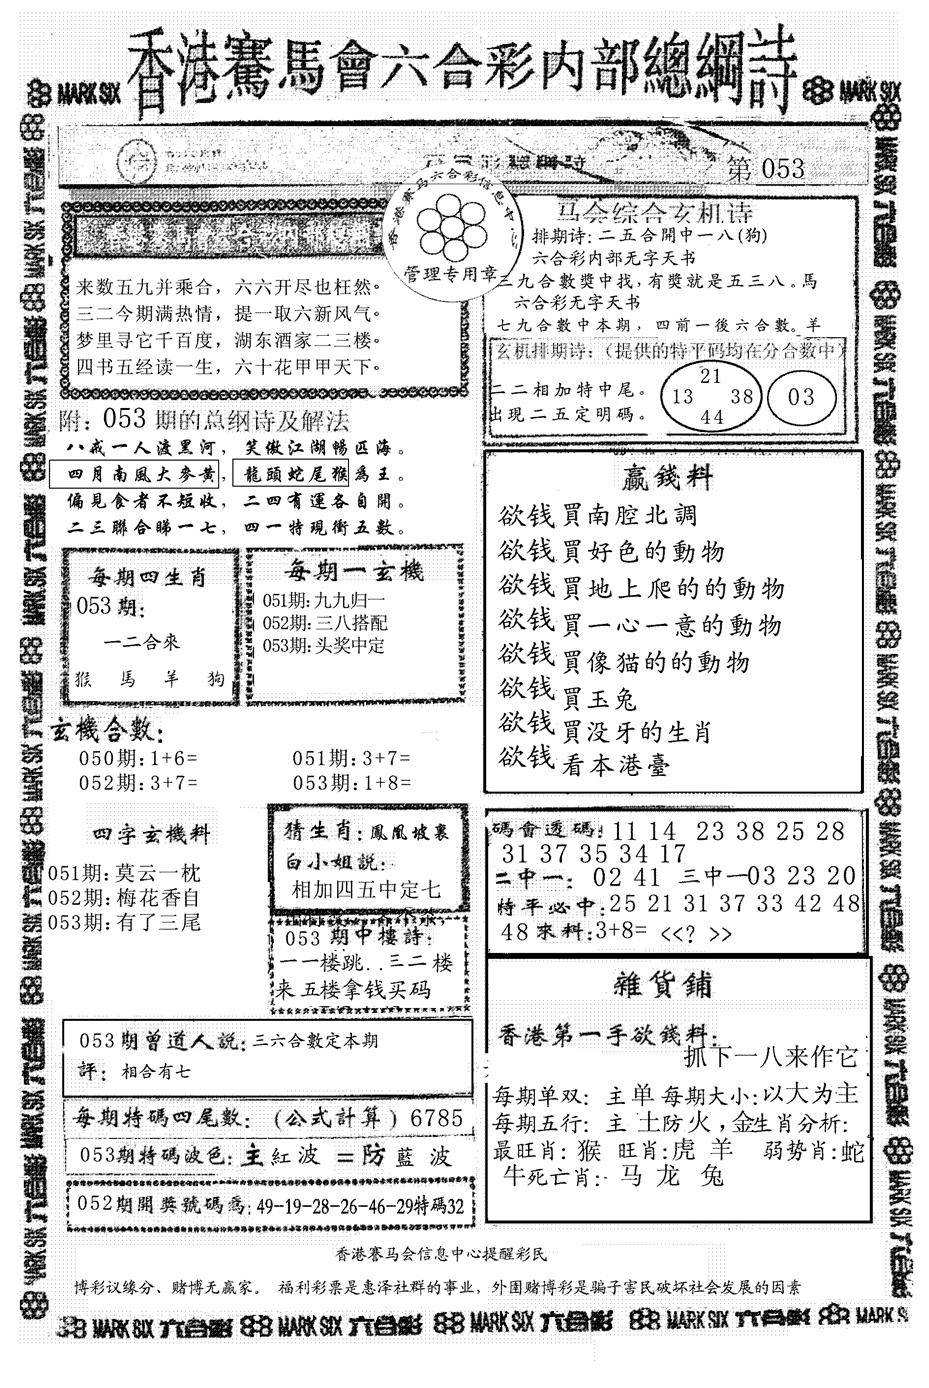 香港賽馬會六合彩内部總綱詩
MARK SIX
MARK SIX
第 053
香港赛马六合彩信息中心
管理专用章
来数五九并乘合，六六开尽也枉然。
三二今期满热情，提一取六新风气。
梦里寻它千百度，湖东酒家二三楼。
四书五经读一生，六十花甲甲天下。
马会综合玄机诗
排期诗:二五合開中一八(狗)
六合彩内部无字天书
三九合數獎中找,有獎就是五三八。馬
六合彩无字天书
七九合數中本期，四前一後六合數。羊
玄机排期诗:（提供的特平码均在分合数中）
二二相加特中尾。
出現二五定明碼。
21
13 38
44
03
附：053 期的总纲诗及解法
八戒一人渡黑河，笑傲江湖暢區海。
四月南風大麥黃，龍頭蛇尾猴為王。
偏見食者不短收，二四有運各自開。
二三聯合睇一七，四一特現衝五數。
每期四生肖
053期:
一二合來
猴 馬 羊 狗
每期一玄機
051期:九九归一
052期:三八搭配
053期:头奖中定
赢錢料
欲钱買南腔北調
欲钱買好色的動物
欲钱買地上爬的的動物
欲钱買一心一意的動物
欲钱買像猫的的動物
欲钱買玉兔
欲钱買没牙的生肖
欲钱看本港臺
玄機合數:
050期:1+6= 051期:3+7=
052期:3+7= 053期:1+8=
四字玄機料
051期:莫云一枕
052期:梅花香自
053期:有了三尾
猜生肖:鳳凰坡裏
白小姐説:
相加四五中定七
053 期中樓詩:
一一楼跳..三二楼
来五楼拿钱买码
碼會透碼:11 14 23 38 25 28
31 37 35 34 17
二中一: 02 41 三中一03 23 20
特平必中:25 21 31 37 33 42 48
48來料:3+8= <<? >>
053期曾道人説:三六合數定本期
評: 相合有七
每期特碼四尾數:（公式計算）6785
053期特碼波色:主紅波 =防藍波
052期開獎號碼爲:49-19-28-26-46-29特碼32
雜貨鋪
香港第一手欲錢料:
抓下一八来作它
每期单双: 主单 每期大小:以大为主
每期五行: 主 土防火,金生肖分析:
最旺肖:猴 旺肖:虎 羊 弱势肖:蛇
牛死亡肖: 马 龙 兔
香港赛马会信息中心提醒彩民
博彩议缘分、赌博无赢家。 福利彩票是惠泽社群的事业，外围赌博彩是骗子害民破坏社会发展的因素
MARK SIX 六合彩 MARK SIX 六合彩 MARK SIX 六合彩 MARK SIX 六合彩 MARK SIX